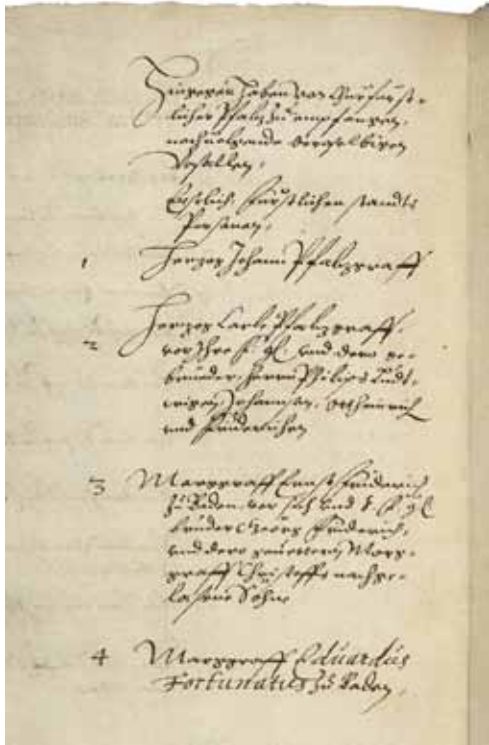 Hingegen haben von Churfürst-
licher Pfaltz zu empfangen,
nachvolgende
Vasallen,
Erstlich, Fürstlichen standts
Personen,
1 Hertzog Johann Pfaltzgraff
2 Hertzog Carle Pfaltzgraff,
vor Ihre f. gl. und dero ge-
brüder, Herrn Philips Ludt-
wigen, Johannsen, Ottheinrich
und Friderichen
3 Marggraff Ernst Friderich
zu Baden, vor sich und f. gl.
bruder Georg Friderich,
und dero gevettern Marg-
graff Christoffs nachge-
laßene Söhne
4 Marggraff Eduardus
Fortunatus zu Baden,